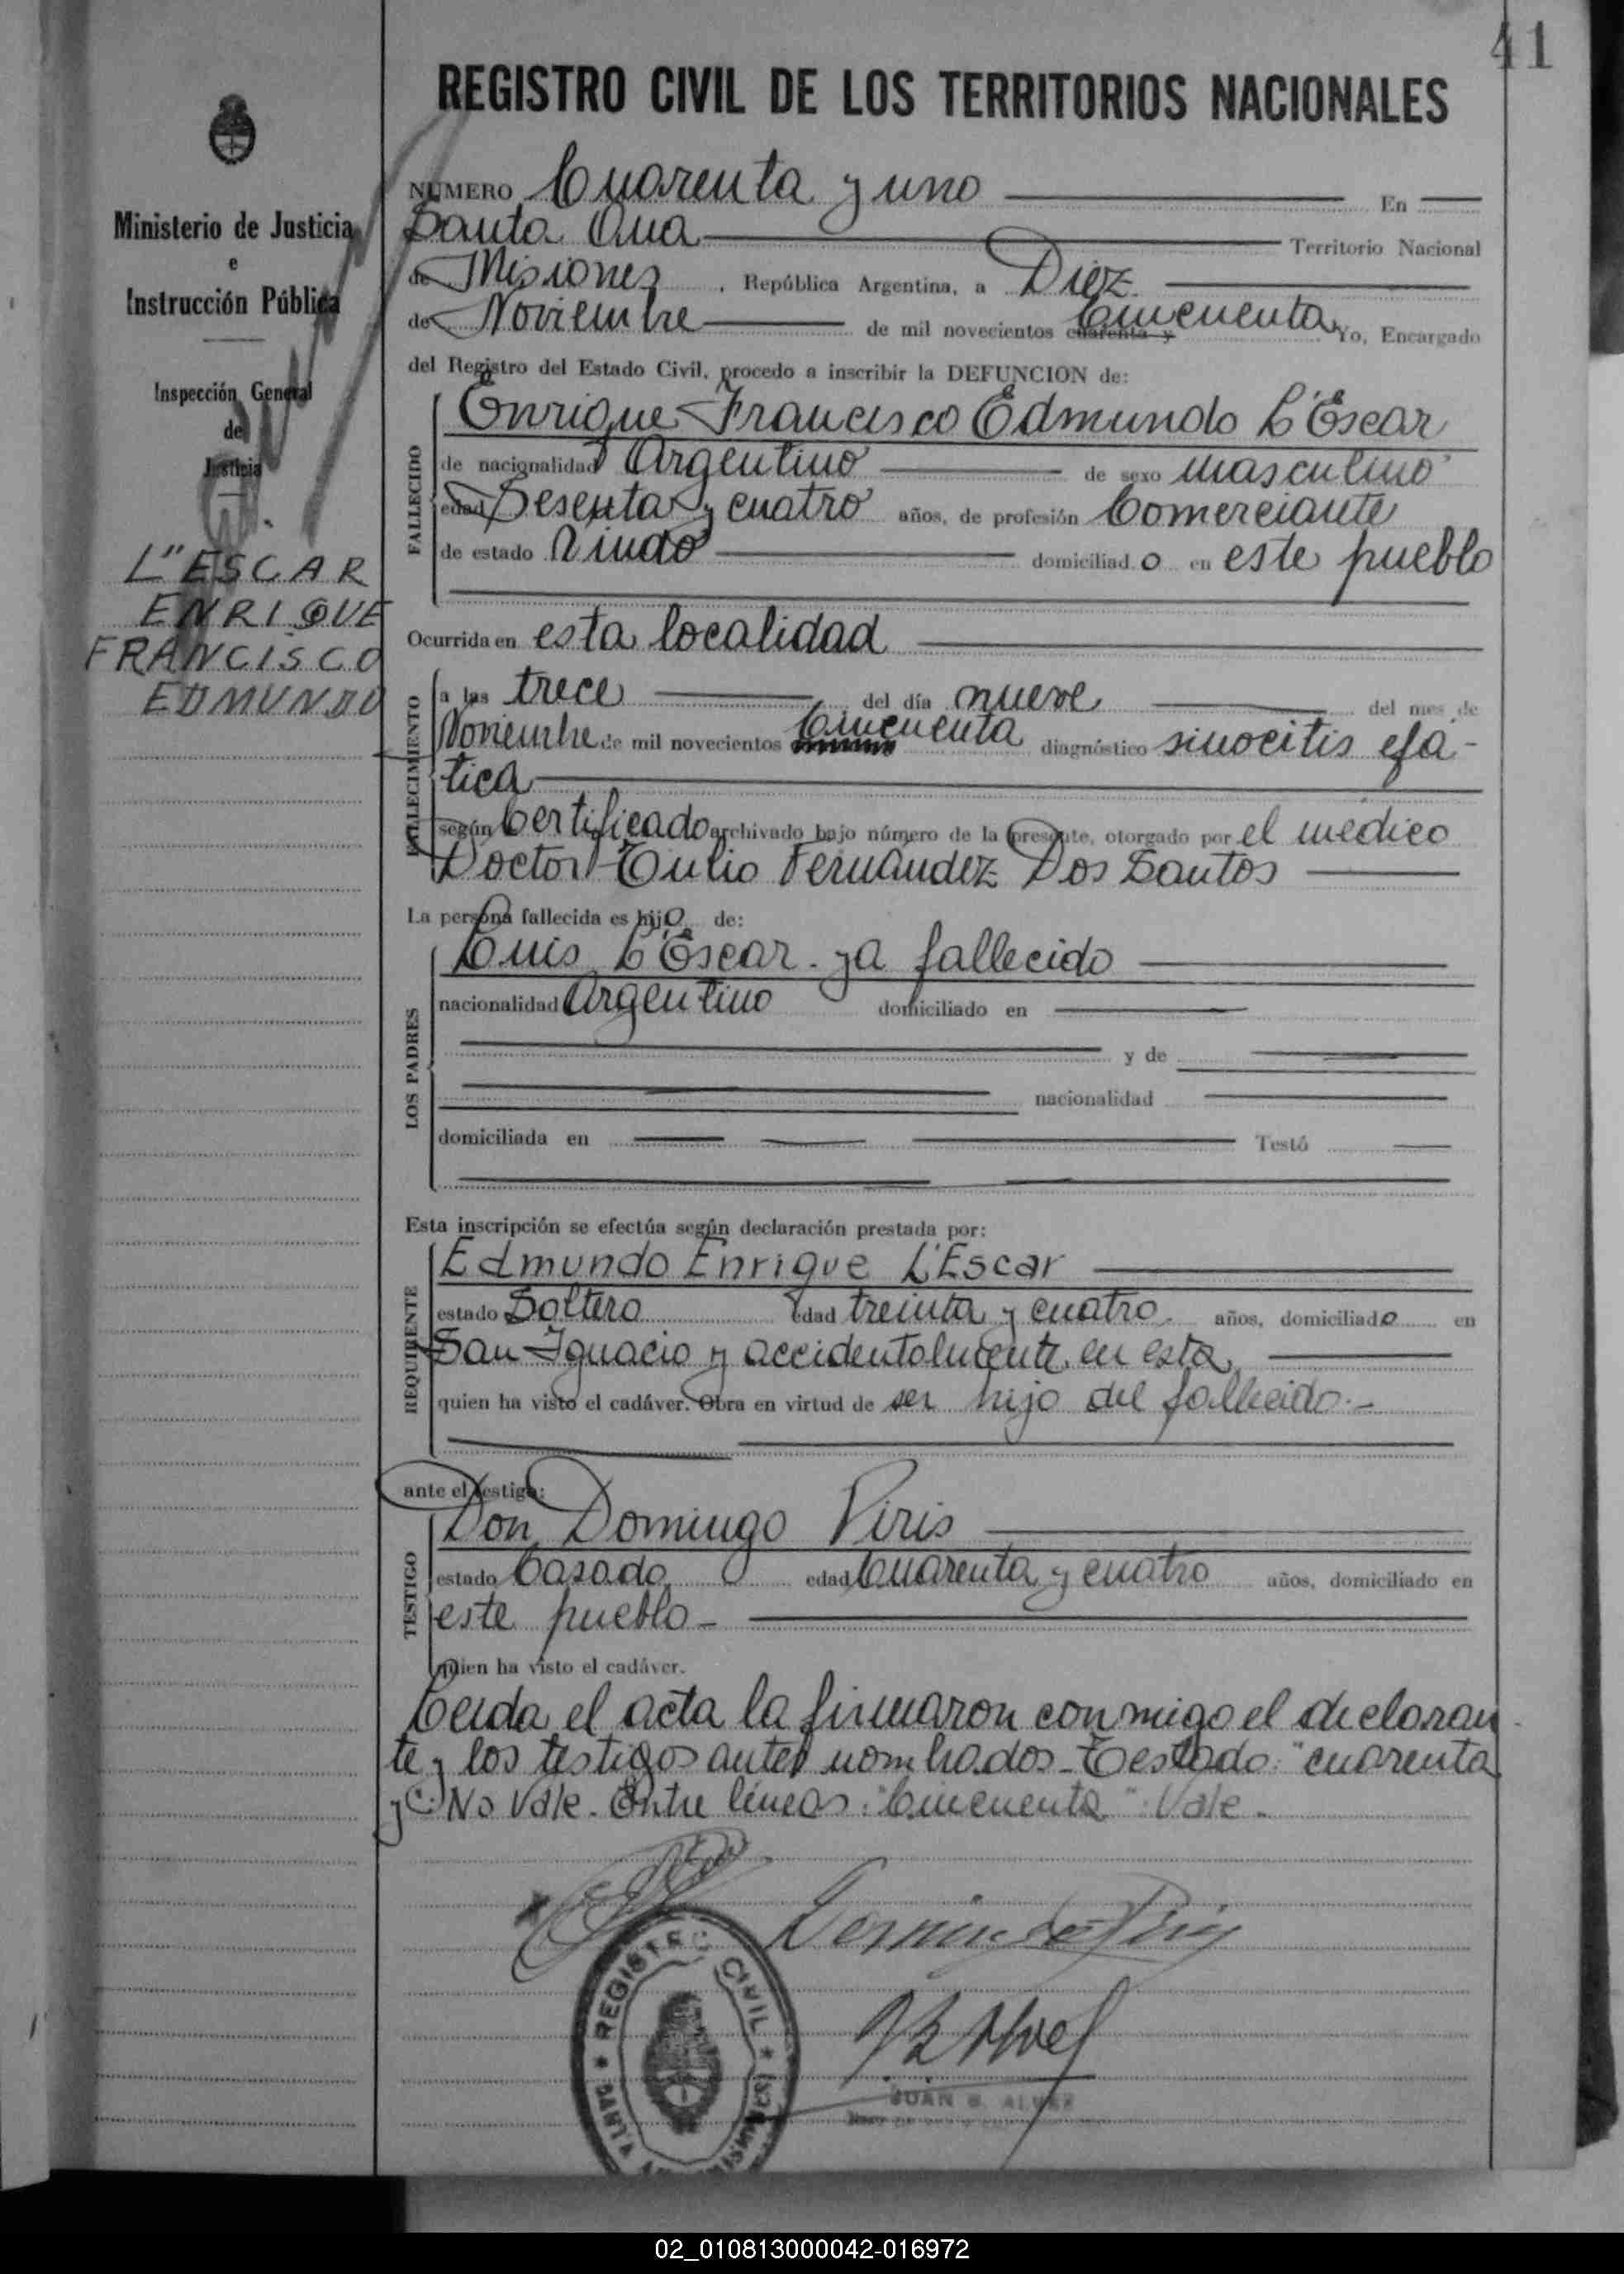 41
REGISTRO CIVIL DE LOS TERRITORIOS NACIONALES
Ministerio de Justicia
e
Instrucción Pública
Inspección General
de
Justicia
L"ESCAR
ENRIQUE
FRANCISCO
EDMUNDO
NÚMERO Cuarenta y uno En
Santa Ana Territorio Nacional
de Misiones, República Argentina, a Diez
de Noviembre de mil novecientos cuarenta y Cincuenta Yo, Encargado
del Registro del Estado Civil, procedo a inscribir la DEFUNCION de:
FALLECIDO
Enrique Francisco Edmundo L'Escar
de nacionalidad Argentino de sexo masculino
edad Sesenta y cuatro años, de profesión Comerciante
de estado Viudo domiciliad o en este pueblo
Ocurrida en esta localidad
FALLECIMIENTO
a las trece del día nueve del mes de
Noviembre de mil novecientos Cincuenta diagnóstico
tica
según Certificado archivado bajo número de la presente, otorgado por el médico
Doctor Tulio Fernández Dos Santos
La persona fallecida es hijo de:
LOS PADRES
Luis L'Escar - ya fallecido
nacionalidad Argentino domiciliado en
y de
nacionalidad
domiciliada en Testó
Esta inscripción se efectúa según declaración prestada por:
REQUIRENTE
Edmundo Enrique L'Escar
estado Soltero edad treinta y cuatro años, domiciliado en
San Ignacio y accidentalmente en esta
quien ha visto el cadáver. Obra en virtud de ser hijo del fallecido.-
ante el testigo:
TESTIGO
Don Domingo Piris
estado Casado edad Cuarenta y cuatro años, domiciliado en
este pueblo -
quien ha visto el cadáver.
Leida el acta la firmaron conmigo el declaran
te y los testigos antes nombrados - Testado: "cuarenta
y": No Vale. Entre líneas: "Cincuenta" Vale.
Domingo Piris
REGISTRO CIVIL * MISIONES * SANTA ANA
JUAN B. ALVEZ
02_010813000042-016972